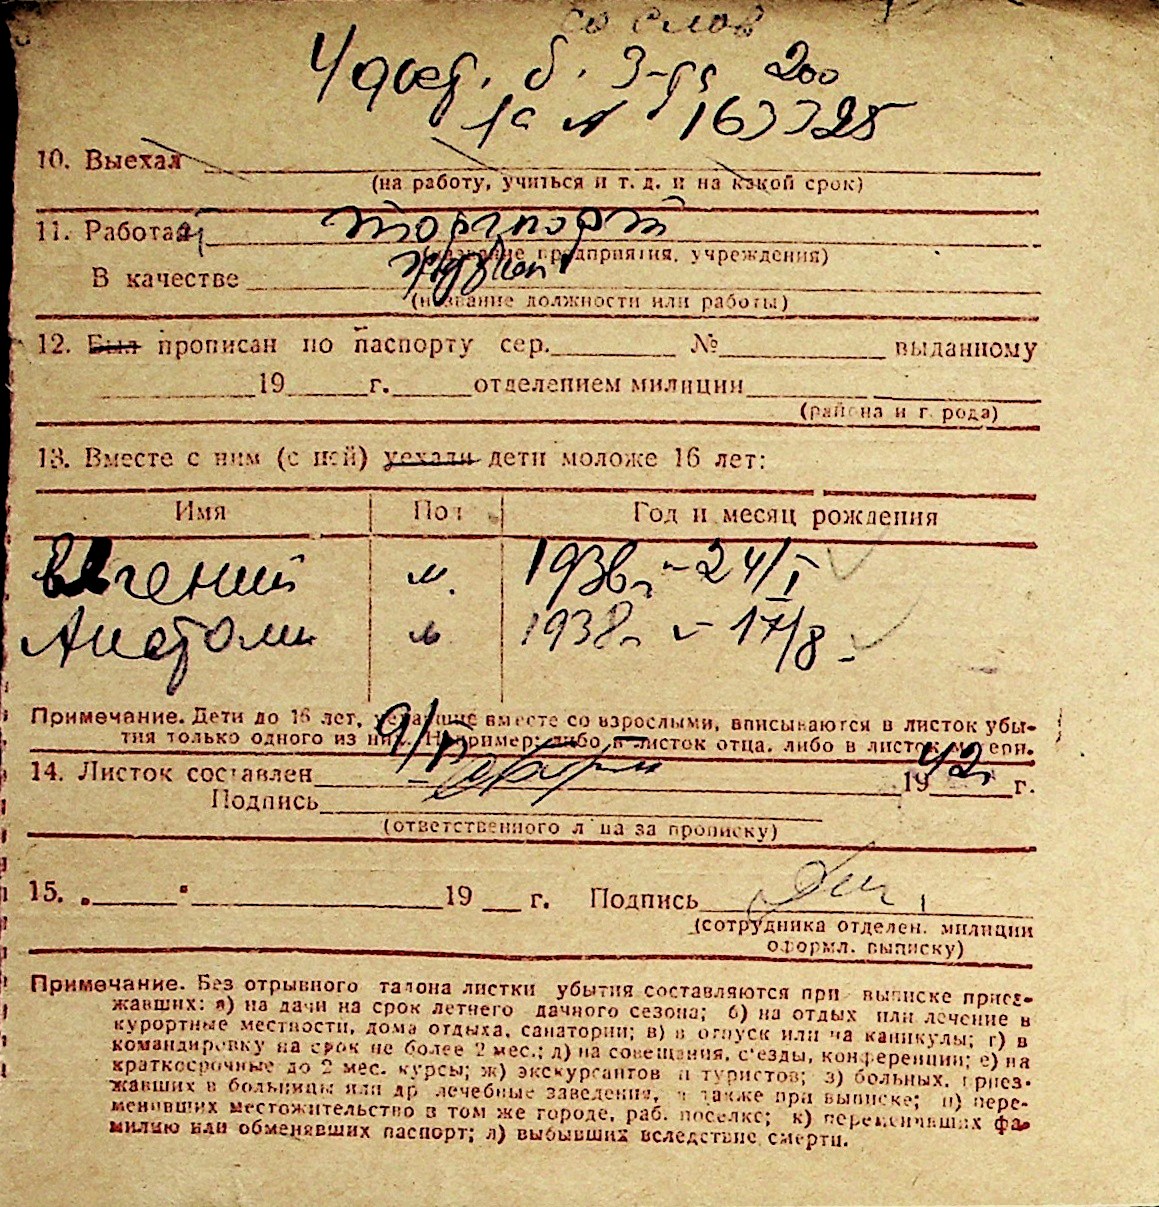 со слов
Удост. б. 3-да 200
1с № 163325
10. Выехал
(на работу, учиться и т. д. и на какой срок)
11. Работал Торгпорт
(название предприятия, учреждения)
В качестве
(название должности или работы)
12. Был прописан по паспорту сер. № выданному
19 г. отделением милиции
(района и города)
13. Вместе с ним (с ней) уехали дети моложе 16 лет:
Имя Пол Год и месяц рождения
Евгений м. 1936г. - 24/I
Анатоли м 1938г. - 17/8
Примечание. Дети до 16 лет, уехавшие вместе со взрослыми, вписываются в листок убы-
тия только одного из них. Например: либо в листок отца, либо в листок матери.
14. Листок составлен 9/V 1942 г.
Подпись
(ответственного лица за прописку)
15. „ " 19 г. Подпись
(сотрудника отделен. милиции
оформл. выписку)
Примечание. Без отрывного талона листки убытия составляются при выписке приез-
жавших: а) на дачи на срок летнего дачного сезона; б) на отдых или лечение в
курортные местности, дома отдыха, санатории; в) в отпуск или на каникулы; г) в
командировку на срок не более 2 мес.; д) на совещания, с'езды, конференции; е) на
краткосрочные до 2 мес. курсы; ж) экскургантов и туристов; з) больных, приез-
жавших в больницы или др лечебные заведения, а также при выписке; и) пере-
менивших местожительство в том же городе, раб. поселке; к) переменивших фа-
милию или обменявших паспорт; л) выбывших вследствие смерти.